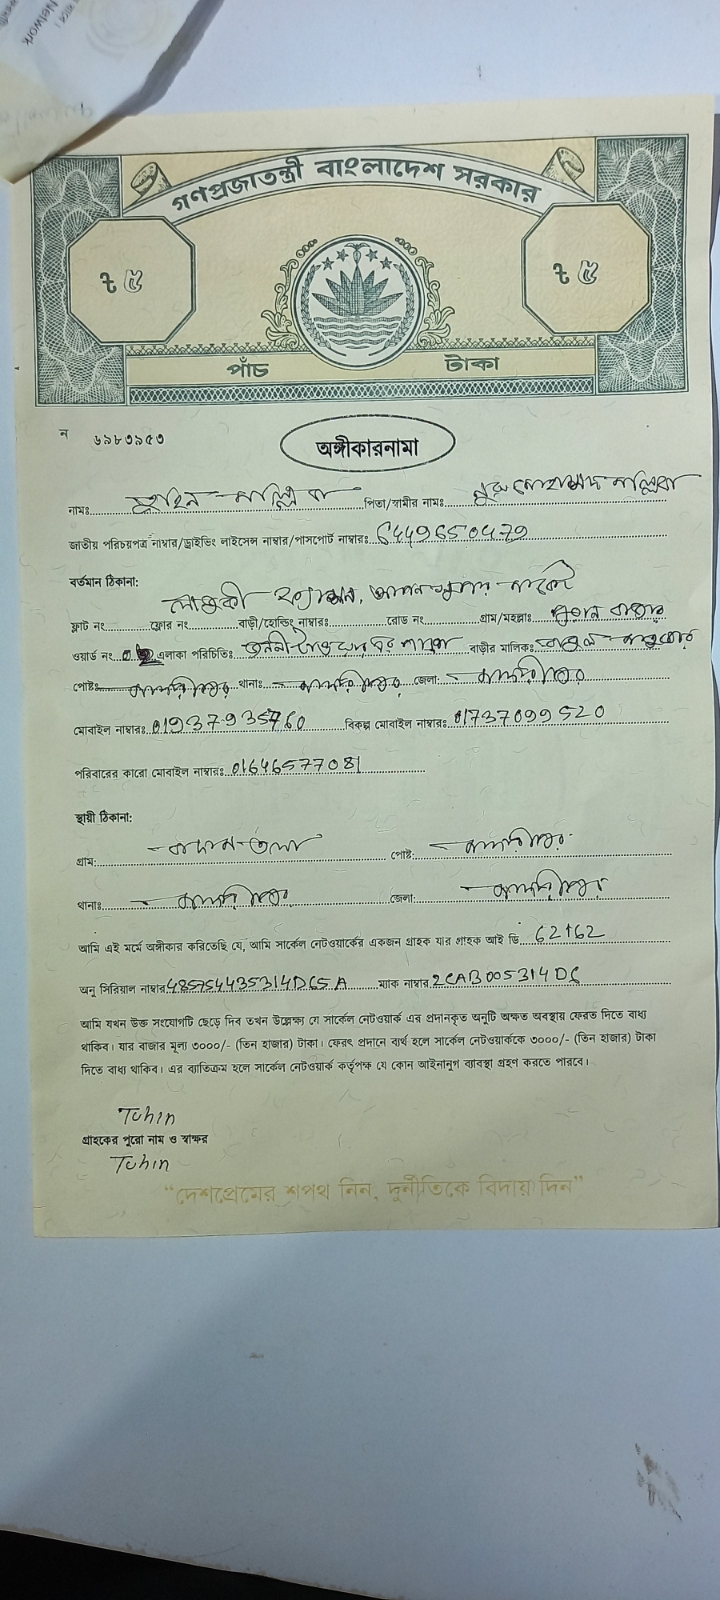 Network
গণপ্রজাতন্ত্রী বাংলাদেশ সরকার
৳ ৫ ৳ ৫
পাঁচ টাকা
ন ৬৯৮৩৯৫৩
অঙ্গীকারনামা
নামঃ তুহিন মল্লিক পিতা/স্বামীর নামঃ
জাতীয় পরিচয়পত্র নাম্বার/ড্রাইভিং লাইসেন্স নাম্বার/পাসপোর্ট নাম্বারঃ 6449650479
বর্তমান ঠিকানা:
ফ্লাট নং ফ্লোর নং বাড়ী/হোল্ডিং নাম্বারঃ রোড নং গ্রাম/মহল্লাঃ পুরান বাজার
ওয়ার্ড নং এলাকা পরিচিতিঃ বাড়ীর মালিকঃ
পোষ্টঃ মাদারীপুর থানাঃ মাদারীপুর জেলা: মাদারীপুর
মোবাইল নাম্বারঃ 01937935760 বিকল্প মোবাইল নাম্বারঃ 01737099520
পরিবারের কারো মোবাইল নাম্বারঃ 01646577081
স্থায়ী ঠিকানা:
গ্রাম: পোষ্ট: মাদারীপুর
থানাঃ মাদারীপুর জেলা: মাদারীপুর
আমি এই মর্মে অঙ্গীকার করিতেছি যে, আমি সার্কেল নেটওয়ার্কের একজন গ্রাহক যার গ্রাহক আই ডি 62162
অনু সিরিয়াল নাম্বার 485754435314DC5A ম্যাক নাম্বার 2CAB005314DC
আমি যখন উক্ত সংযোগটি ছেড়ে দিব তখন উল্লেক্ষ্য যে সার্কেল নেটওয়ার্ক এর প্রদানকৃত অনুটি অক্ষত অবস্থায় ফেরত দিতে বাধ্য
থাকিব। যার বাজার মূল্য ৩০০০/- (তিন হাজার) টাকা। ফেরৎ প্রদানে ব্যর্থ হলে সার্কেল নেটওয়ার্ককে ৩০০০/- (তিন হাজার) টাকা
দিতে বাধ্য থাকিব। এর ব্যতিক্রম হলে সার্কেল নেটওয়ার্ক কর্তৃপক্ষ যে কোন আইনানুগ ব্যাবস্থা গ্রহণ করতে পারবে।
Tuhin
গ্রাহকের পুরো নাম ও স্বাক্ষর
Tuhin
"দেশপ্রেমের শপথ নিন, দুর্নীতিকে বিদায় দিন"